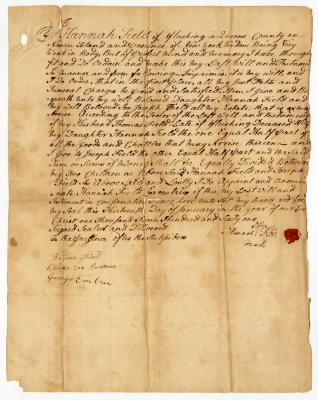 I Hannah Field of Flushing in Queens County on
Nassau Island and Province of New York Widdow Being Very
Weak in Body But of Perfect Mind and Memory I have thought
fit and Do Ordain and make this my Last Will and Testament
in manner and form following Imprimis it is my will and
I Do Order that in the first place all my Just Debts and
Funeral Charges be paid and Satisfied Item I Give and Be
queath unto my well Beloved Daughter Hannah Field and
my well Beloved Son Joseph Field all my Estate that may
Arise According to the Tenor of the Last Will and testament
of my Husband Thomas Field Late of Flushing Deceased
my Daughter Hannah Field the one Equal Half part of
all the Goods and Chattles that may Arise therein and
I give to Joseph Field the other Equal Half and the said
Sum or Sums of money shall be Equally Divided Between
my two Children as Aforesaid Hannah Field and Joseph
Field the Above and Lastly I Do Appoint and
make Hannah Field Executrix of this my Last Will and
Testament in confirmation I have here unto set my hand and fix
my Seal this thirteenth Day of January in the year of our
Christ one thousand Seven Hundred and Sixty one
Signed Sealed and Delivered
in the presence of us the Subscribers
Hannah Field
mark
George Embree